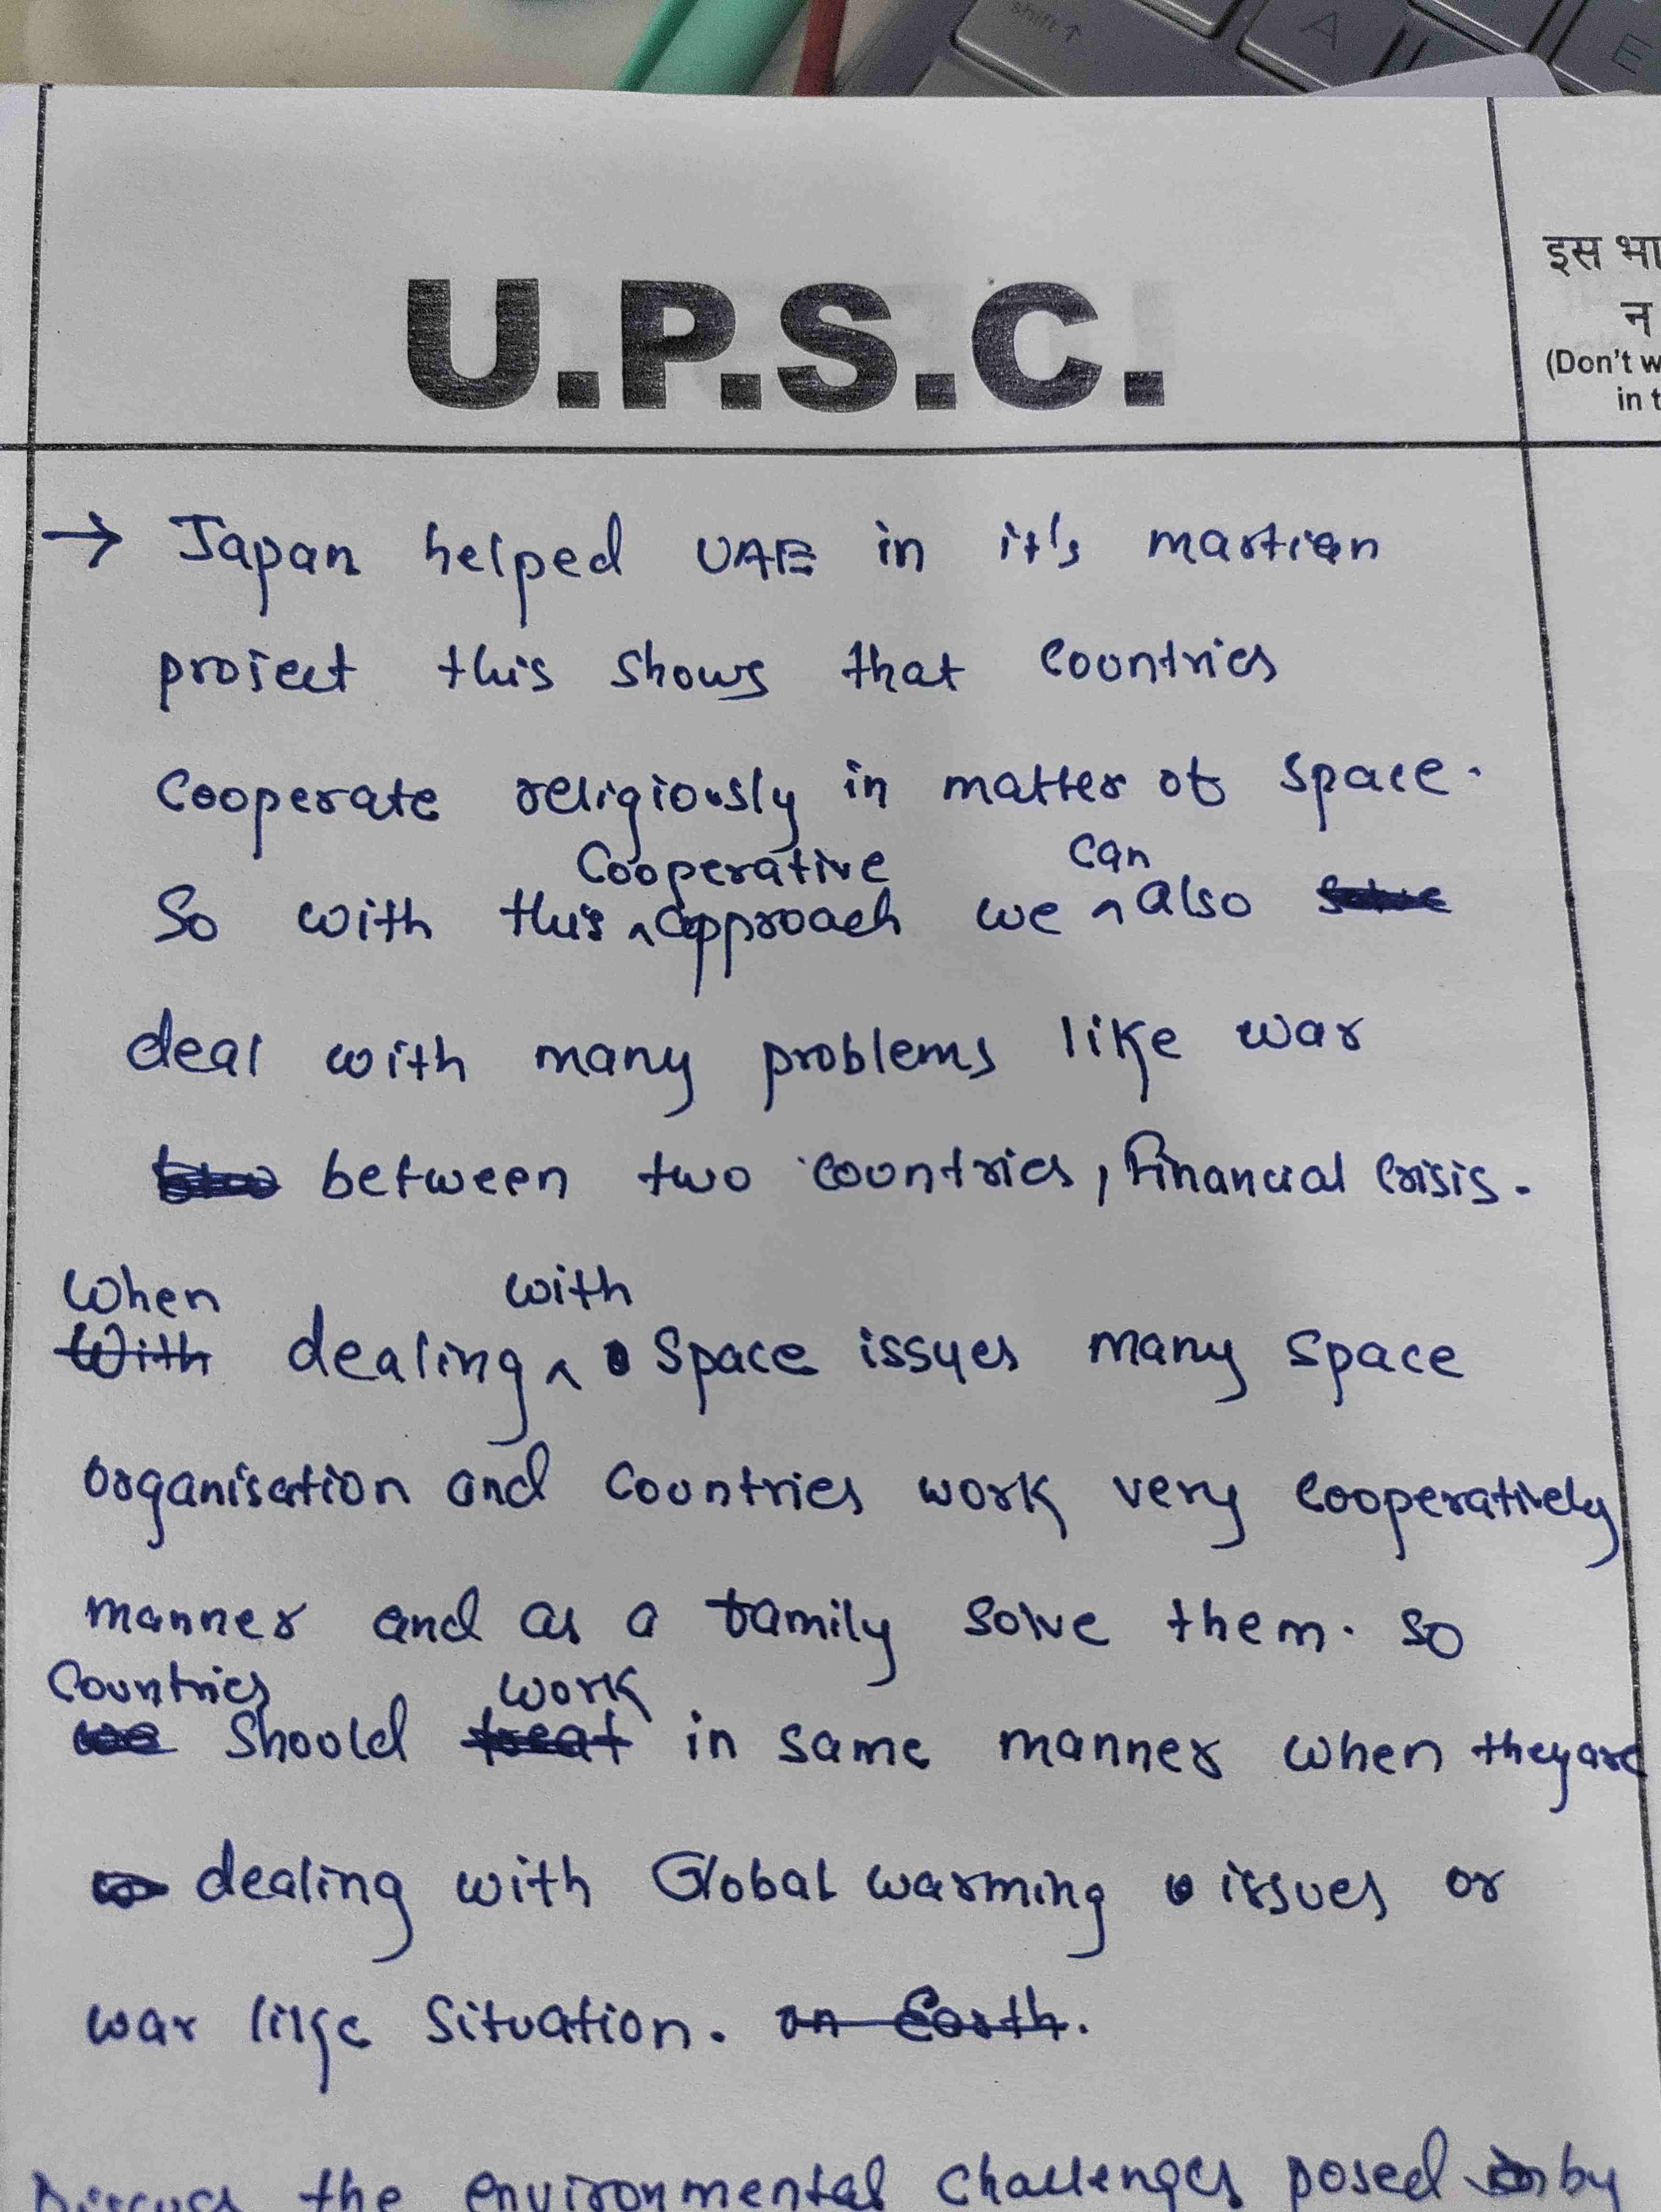 shift ↑
A
E
U.P.S.C.
इस भा
न
(Don't w
in t
→ Japan helped UAE in it's martian
project this shows that countries
cooperate religiously in matter of space.
So with this cooperative approach we can also
deal with many problems like war
between two countries, financial crisis.
When dealing with space issues many space
organisation and countries work very cooperatively
manner and as a family solve them. So
countries should work in same manner when they are
dealing with Global warming issues or
war like situation. on Earth.
Discuss the environmental challenges posed by